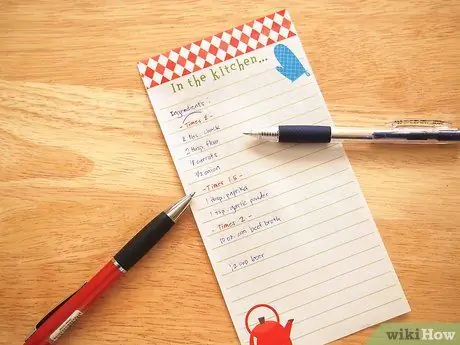 In the kitchen...
Ingredients:
- Times 2 -
2 lbs. chuck
2 tbsp flour
4 carrots
1/2 onion
- Times 1.5 -
1 tbsp. paprika
1 tsp. garlic powder
- Times 2 -
10 oz. can beef broth
1/2 cup beer
wikiHow